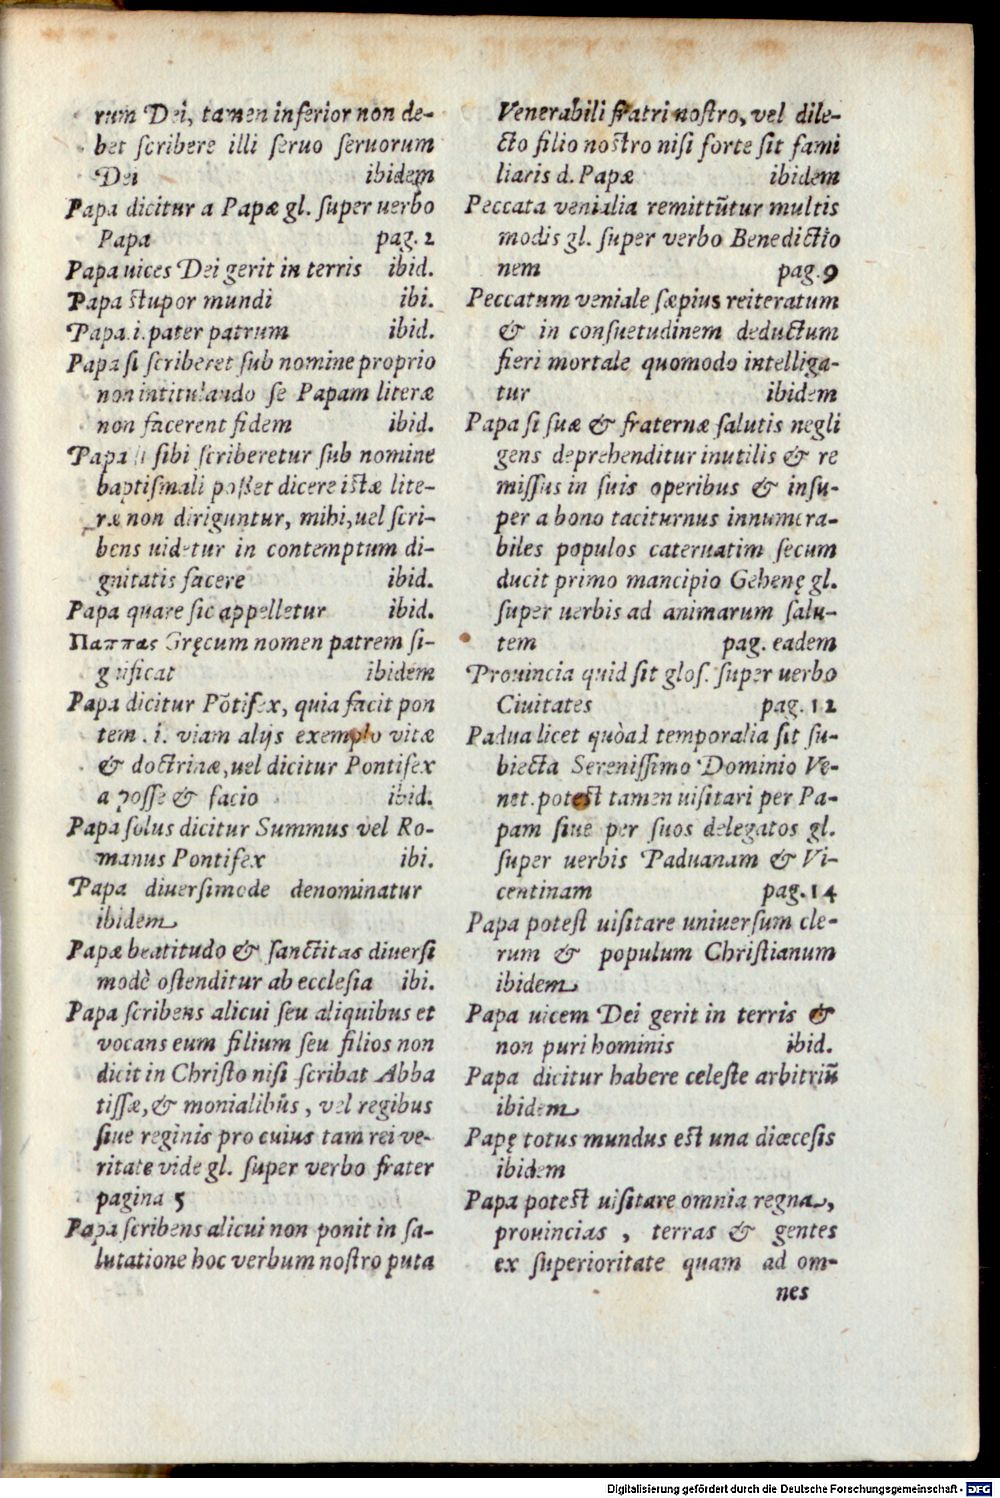 rum Dei, tamen inferior non de-
bet scribere illi seruo seruorum
Dei ibidem
Papa dicitur a Papæ gl. super uerbo
Papa pag. 2
Papa uices Dei gerit in terris ibid.
Papa stupor mundi ibi.
Papa .i. pater patrum ibid.
Papa si scriberet sub nomine proprio
non intitulando se Papam literæ
non facerent fidem ibid.
Papa si sibi scriberetur sub nomine
baptismali posset dicere istæ lite-
ræ non diriguntur, mihi, uel scri-
bens uidetur in contemptum di-
gnitatis facere ibid.
Papa quare sic appelletur ibid.
Παππας Gręcum nomen patrem si-
gnificat ibidem
Papa dicitur Põtifex, quia facit pon
tem .i. viam alijs exemplo vitæ
& doctrinæ, uel dicitur Pontifex
a posse & facio ibid.
Papa solus dicitur Summus vel Ro-
manus Pontifex ibi.
Papa diuersimode denominatur
ibidem
Papæ beatitudo & sanctitas diuersi
modè ostenditur ab ecclesia ibi.
Papa scribens alicui seu aliquibus et
vocans eum filium seu filios non
dicit in Christo nisi scribat Abba
tissæ, & monialibus, vel regibus
siue reginis pro cuius tam rei ve-
ritate vide gl. super verbo frater
pagina 5
Papa scribens alicui non ponit in sa-
lutatione hoc verbum nostro puta
Venerabili fratri nostro, vel dile-
cto filio nostro nisi forte sit fami
liaris d. Papæ ibidem
Peccata venialia remittũtur multis
modis gl. super verbo Benedictio
nem pag. 9
Peccatum veniale sæpius reiteratum
& in consuetudinem deductum
fieri mortale quomodo intelliga-
tur ibidem
Papa si suæ & fraternæ salutis negli
gens deprehenditur inutilis & re
missus in suis operibus & insu-
per a bono taciturnus innumera-
biles populos cateruatim secum
ducit primo mancipio Gehenę gl.
super uerbis ad animarum salu-
tem pag. eadem
Prouincia quid sit glos. super uerbo
Ciuitates pag. 12
Padua licet quòad temporalia sit su-
biecta Serenissimo Dominio Ve-
net. potest tamen uisitari per Pa-
pam siue per suos delegatos gl.
super uerbis Paduanam & Vi-
centinam pag. 14
Papa potest uisitare uniuersum cle-
rum & populum Christianum
ibidem
Papa uicem Dei gerit in terris &
non puri hominis ibid.
Papa dicitur habere celeste arbitriũ
ibidem
Papę totus mundus est una diœcesis
ibidem
Papa potest uisitare omnia regna,
prouincias , terras & gentes
ex superioritate quam ad om-
nes
Digitalisierung gefördert durch die Deutsche Forschungsgemeinschaft - DFG